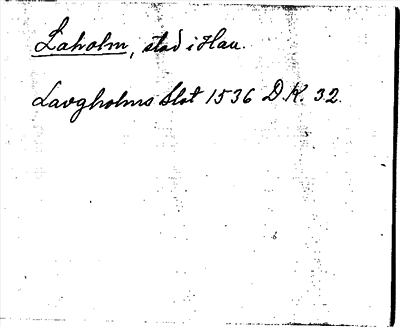 Laholm, stad i Hall.
Lavgholms Slot 1536 D.K. 32.